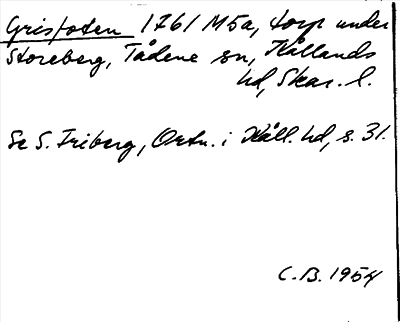 Grisfoten 1761 M5a, torp under
Storeberg, Tådene sn, Kållands
hd, Skar. l.
Se S. Friberg, Ortn. i Kåll. hd, s. 31.
C.B. 1954